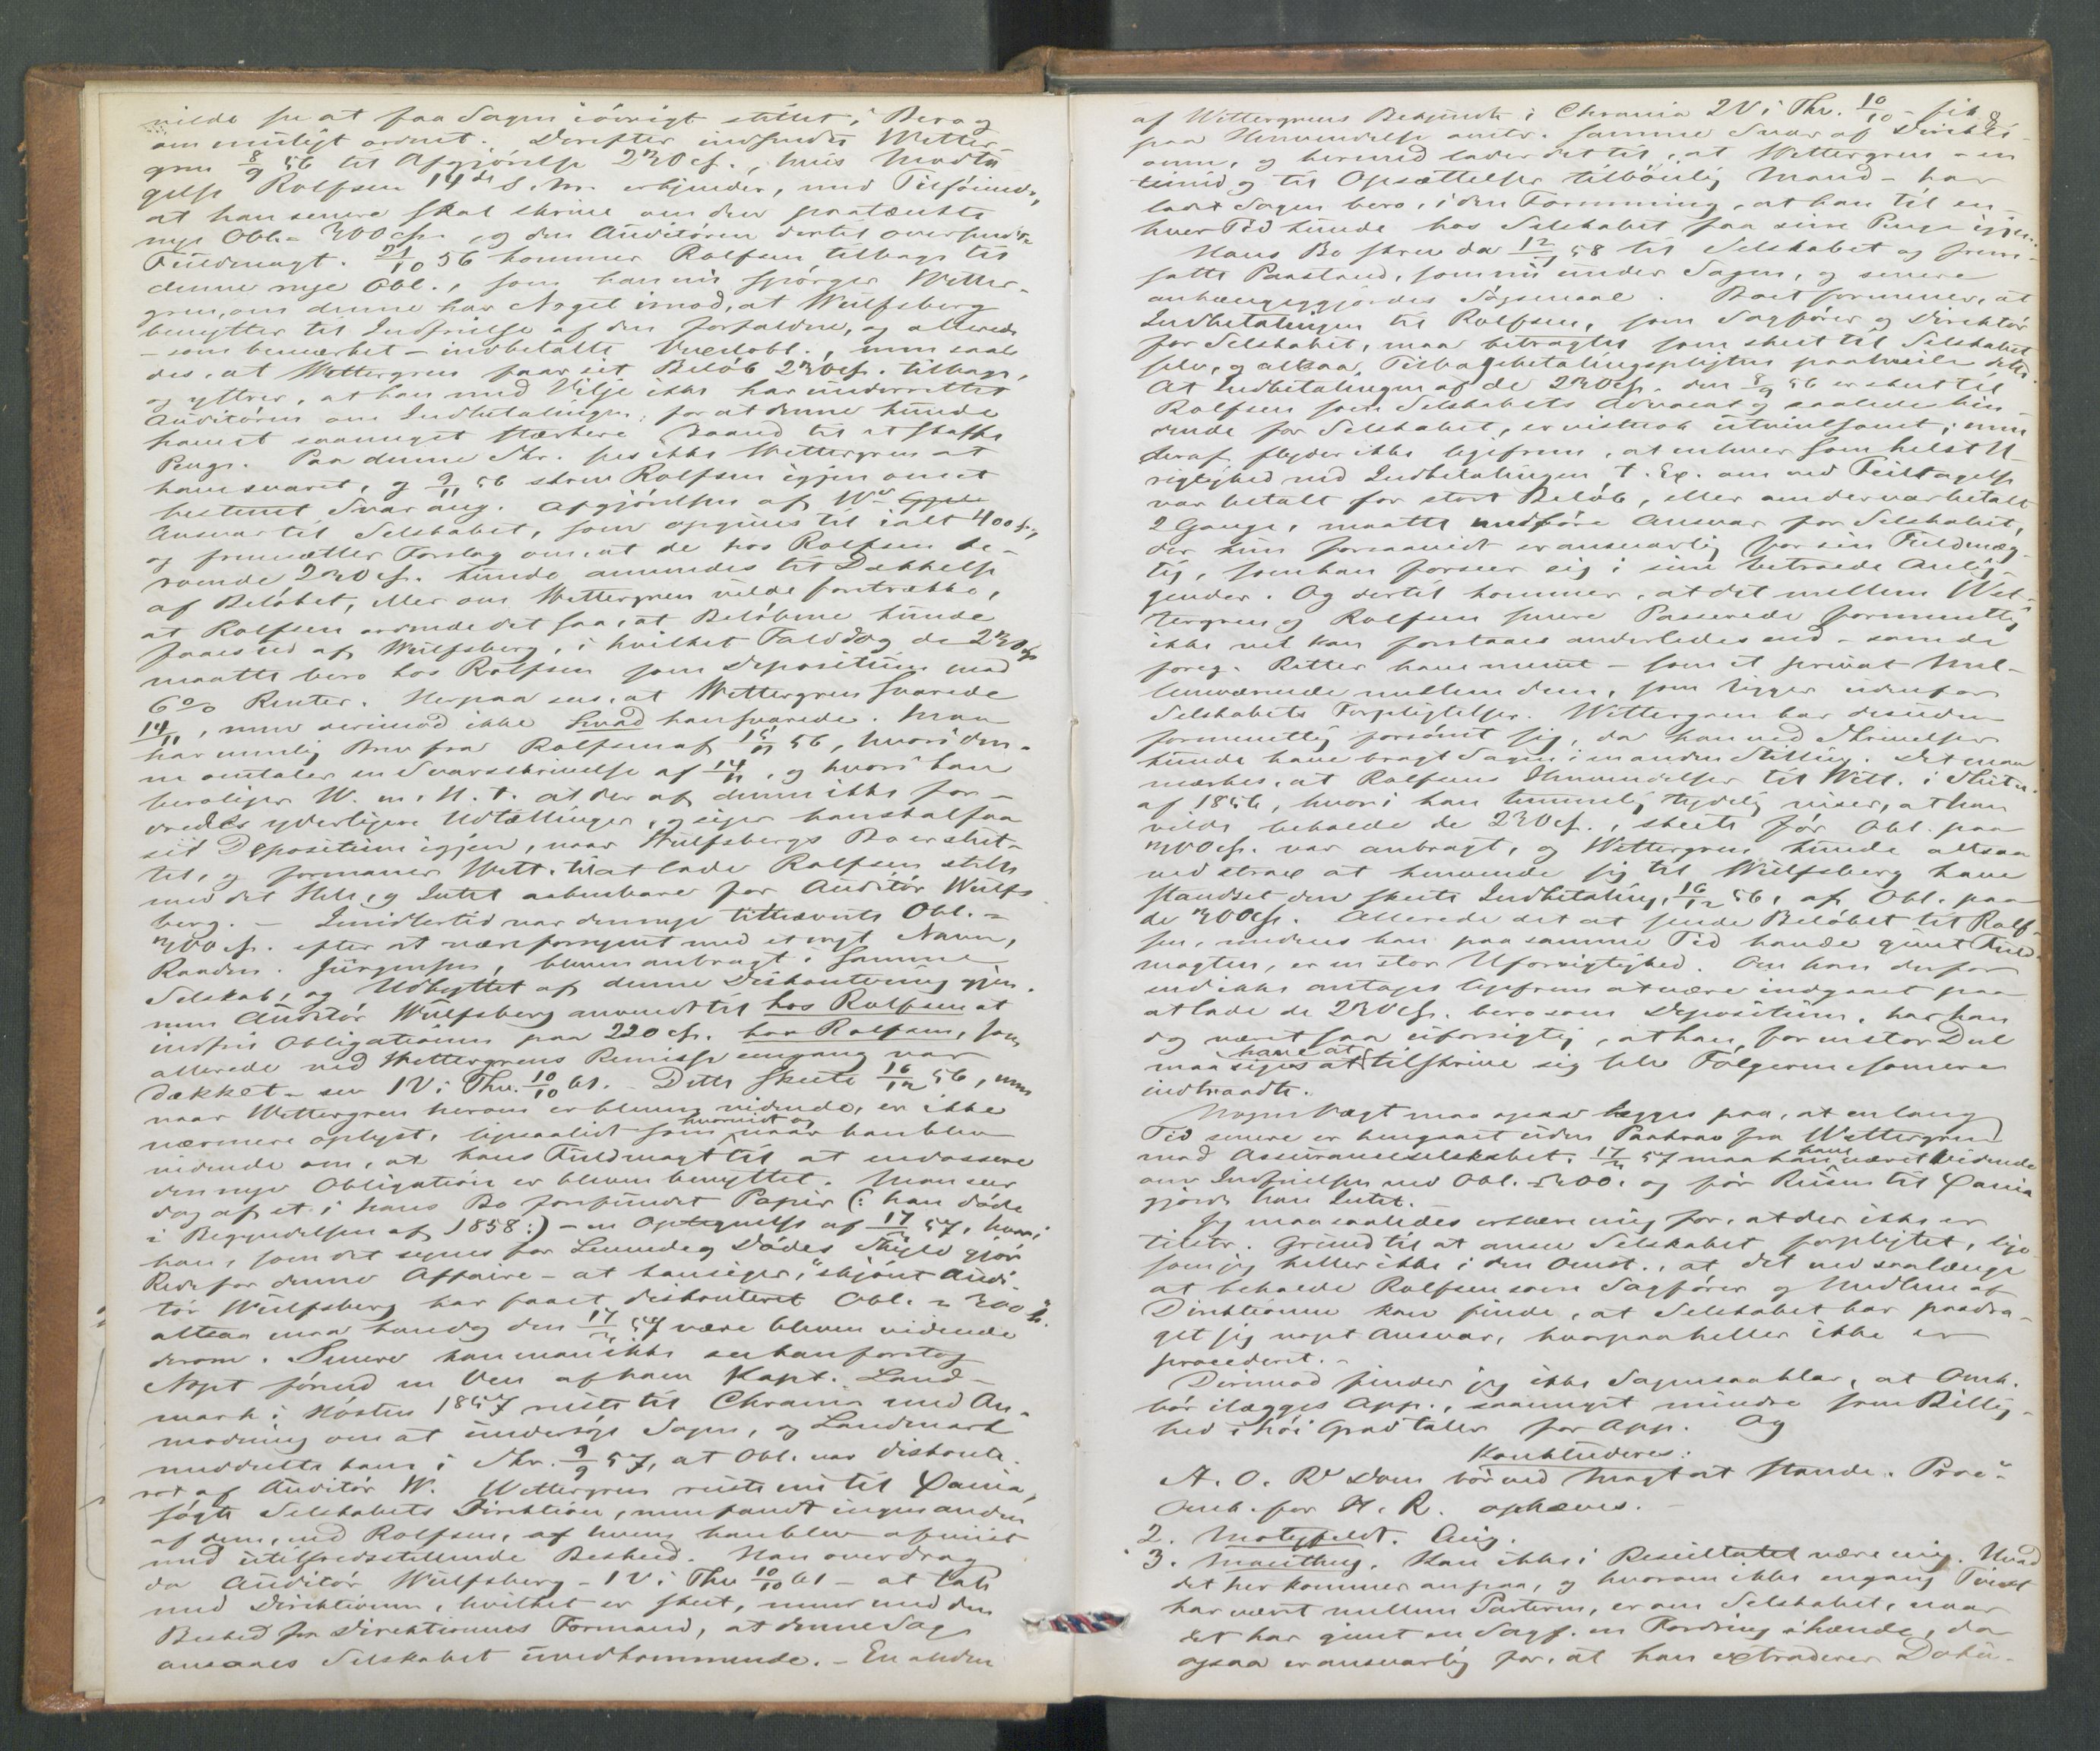 vilde se at faa Sagen iövrigt stillet i Bero og
om muligt ordnet. Derefter indsendte Wetter-
gren 8/9 56 til Afgjörelse 230 cf., hvis Modta
gelse Rolfsen 14de s. M. erkjender, med Tilföiende,
at han senere skal skrive om den paatænkte
nye Obl. = 300 cf., og den Auditören dertil oversendte
Fuldmagt. 21/10 56 kommer Rolfsen tilbage til
denne nye Obl., som han nu spörger Wetter-
gren, om denne har Noget imod, at Wulfsberg
benytter til Indfrielse af den forfaldne, og allerede
- som bemærket - indbetalte Vexelobl., men saale
des, at Wettergren faar sit Belöb 230 cf. tilbage,
og yttrer, at han med Vilje ikke har underrettet
Auditören om Indbetalingen, for at denne kunde
havt saameget stærkere Baand til at skaffe
Penge. Paa denne Skr. sees ikke Wettergren at
have svaret, og 9/11 56 skrev Rolfsen igjen om et
bestemt Svar ang. Afgjörelsen af Ws
Ansvar til Selskabet, som opgives til ialt 400 cf.,
og fremsætter Forslag om, at de hos Rolfsen be-
roende 230 cf. kunde anvendes til Dækkelse
af Belöbet, eller om Wettergren vilde foretrække,
at Rolfsen ordnede det saa, at Belöbene kunde
faaes ud af Wulfsberg, i hvilket Fald dog de 230 cf
maatte bero hos Rolfsen som Depositum mod
6 % Renter. Herpaa sees, at Wettergren svarede
14/11, men derimod ikke hvad han svarede. Man
har nemlig Brev fra Rolfsen af 15/11 56, hvori den-
ne omtaler en Svarskrivelse af 14/11, og hvori han
beroliger W. m. H. t. at der af denne ikke for-
dredes yderligere Udtællinger, og siger han skal faa
sit Depositum igjen, naar Wulfsbergs Bo er slut-
tet, og formaner Wett. til at lade Rolfsen stille
med det Hele, og Intet aabenbare for Auditör Wulfs
berg. - Imidlertid var den nye tilhævnte Obl. =
300 cf. efter at være forsynet med et nyt Navn,
Raadm. Jürgensen, bleven anbragt i samme
Selskab, og Udbyttet af denne Diskontering gjen-
nem Auditör Wulfsberg anvendt til hos Rolfsen at
indfri Obligationen paa 220 cf. hos Rolfsen, som
allerede ved Wettergrens Remisse engang var
dækket - see 1 V. i Thv. 10/10 61. - Dette skeete 16/12 56, men
naar Wettergren herom er bleven vidende, er ikke
nærmere oplyst, ligesaalidt som hvorvidt og naar han blev
vidende om, at hans Fuldmagt til at endossere
den nye Obligation er bleven benyttet. Man seer
dog af et i hans Bo forefundet Papir (: han döde
i Begyndelsen af 1858 :) - en Optegnelse af 17/ 57, hvori
han, som det synes for Levende og Dödes Skyld gjör
Rede for denne Affaire - at han siger, "skjönt Audi
tör Wulfsberg har faaet diskonteret Obl. = 300 cf."
altsaa maa han dog den 17/ 57 være bleven vidende
derom. Senere kan man ikke see han foretog
Noget förend en Ven af ham Kapt. Land-
mark i Hösten 1857 reiste til Chrania med An-
modning om at undersöge Sagen, og Landmark
meddeelte ham i Skr. 9/9 57, at Obl. var diskonte-
ret af Auditör W. Wettergren reiste nu til Xania,
sögte Selskabets Direktion, men fandt ingen anden
af dem, end Rolfsen, af hvem han blev afviist
med utilfredsstillende Besked. Han overdrog
da Auditör Wulfsberg - 1 V. i Thv 10/10 61 - at tale
med Direktionen, hvilket er skeet, men med den
Besked fra Direktionens Formand, at denne Sag
ansaaes Selskabet uvedkommende. - En anden
af Wettergrens Bekjendte i Chrania 2 V i Thv. 10/10 - fik og
paa Henvendelse omtr. samme Svar af Direkti-
onen, og hermed lader det til, at Wettergren - en
timid og til Opsættelser tilböielig Mand - har
ladet Sagen bero, i den Formening, at han til en-
hver Tid kunde hos Selskabet faa sine Penge igjen.
Hans Bo skrev da 12/ 58 til Selskabet og frem-
satte Paastand, som nu under Sagen, og senere
anhængiggjordes Sögsmaal. Boet formener, at
Indbetalingen til Rolfsen, som Sagförer og Direktör
for Selskabet, maa betragtes som skeet til Selskabet
selv, og altsaa Tilbagebetalingspligten paahvile dette.
At Indbetalingen af de 230 cf. den 8/9 56 er skeet til
Rolfsen som Selskabets Advocat og saaledes bin-
dende for Selskabet, er vistnok utvivlsomt; men
deraf flyder ikke ligefrem, at enhver somhelst U-
rigtighed ved Indbetalingen t. Ex. om ved Feiltagelse
var betalt for stort Belöb, eller om der var betalt
2 Gange, maatte medföre Ansvar for Selskabet,
der kun forsaavidt er ansvarlig for sin Fuldmæg-
tig, som han forseer sig i sine betroede Anlig-
gender. Og dertil kommer, at det mellem Wet-
tergren og Rolfsen senere Passerede formentlig
ikke vel kan forstaaes anderledes end - som de
foreg. Retter have meent - som et privat Mel-
lemværende mellem dem, som ligger udenfor
Selskabets Forpligtelser. Wettergren har desuden
formentlig forsömt sig, da han ved Skrivelser
kunde have bragt Sagen i en anden Stilling. Det maa
mærkes, at Rolfsens Henvendelser til Wett. i Slutn.
af 1856, hvori han temmelig tydelig viser, at han
vilde beholde de 230 cf., skeete för Obl. paa
300 cf. var anbragt, og Wettergren kunde altsaa
ved strax at henvende sig til Wulfsberg have
standset den skeete Indbetaling, 16/12 56, af Obl. paa
de 300 cf. Allerede det at sende Belöbet til Rolf-
sen, medens han paa samme Tid havde givet Fuld-
magten, er en stor Uforsigtighed. Om han derfor
end ikke antages ligefrem at være indgaaet paa
at lade de 230 cf. bero som Depositum, har han
dog været saa uforsigtig, at han, for en stor Deel
maa siges have at tilskrive sig selv Fölgerne som ere
indtraadte.
Nogen Vægt maa ogsaa lægges paa, at en lang
Tid senere er hengaaet uden Paakrav fra Wettergren
mod Assuranceselskabet. 17/ 57 maa han have været Vidende
om Indfrielsen ved Obl. = 300. og för Reisen til Xania
gjorde han Intet.
Jeg maa saaledes erklære mig for, at der ikke er
tilstr. Grund til at ansee Selskabet forpligtet, lige-
som jeg heller ikke i den Omst., at det ved saalænge
at beholde Rolfsen som Sagförer og Medlem af
Direktionen kan finde, at Selskabet har paadra-
get sig noget Ansvar, hvorpaa heller ikke er
procederet. -
Derimod finder jeg ikke Sagen saa klar, at Omk.
bör ilægges App., saameget mindre som Billig-
hed i höi Grad taler for App. Og
Konkluderes:
A. O. Rs Dom bör ved Magt at stande. Proc.
Omk. for H. R. ophæves. -
2. Motzfeldt. Enig.
3. Manthey. Kan ikke i Resultatet være enig. Hvad
det her kommer an paa, og hvorom ikke engang Tvist
har været mellem Parterne, er om Selskabet, naar
det har givet en Sagf. en Fordring ihænde, da
ogsaa er ansvarlig for, at han extraderer Doku-